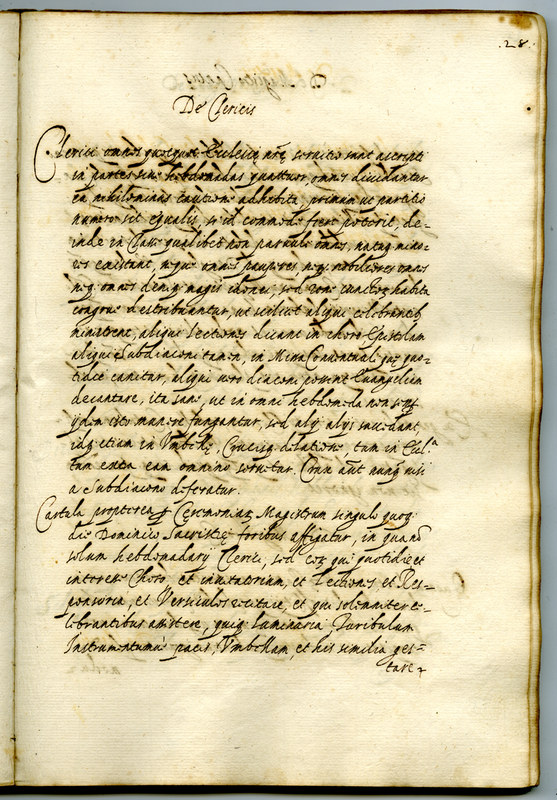 .28.
De Clericis
Clerici omnes quicquot Ecclesiæ nr̃æ seruitio sunt ascripti
in partes siue hebdomadas quattuor, omnes diuidantur
ea nihilominus cautione adhibita, primum ut partitio
numero sit equalis, si id commode fieri poterit, de=
inde in Classe qualibet non paruuli omnes, natuq; mino=
res existant, neque omnes pauperes, neq; nobiliores omnes
neq; omnes deniq; magis idonei, sed rone cunctor; habita
congrue distribuantur, ut scilicet aliqui celebrantib;
ministrent, aliqui Lectiones dicant in choro Epistolam
aliqui Subdiaconi tamen, in Missa Conuentuali quæ quo=
tidie canitur, aliqui uero diaconi possint Euangelium
decantare, ita sane, ut in omni hebdomada non semp
ijdem isto munere fungantur, sed alij alijs succedant
idq; etiam in Vmbellæ, Crucisq; delatione, tum in Eccl.a
tum extra eam omnino seruetur. Crux aũt nunq; nisi
a Subdiacono deferatur.
Cartula propterea p Ceremoniar; Magistrum singulo quoq;
die Dominico Sacristiæ foribus affigatur, in qua nõ
solum hebdomadarij Clerici, sed eor; qui quotidie et
interesse Choro, et inuitatorium, et Lectiones et Res=
ponsoria, et Versiculos recitare, et qui solemniter ce=
lebrantibus assistere, quiq; luminaria Turibulum
Instrumentumue pacis, Vmbellam, et his similia ges=
tare